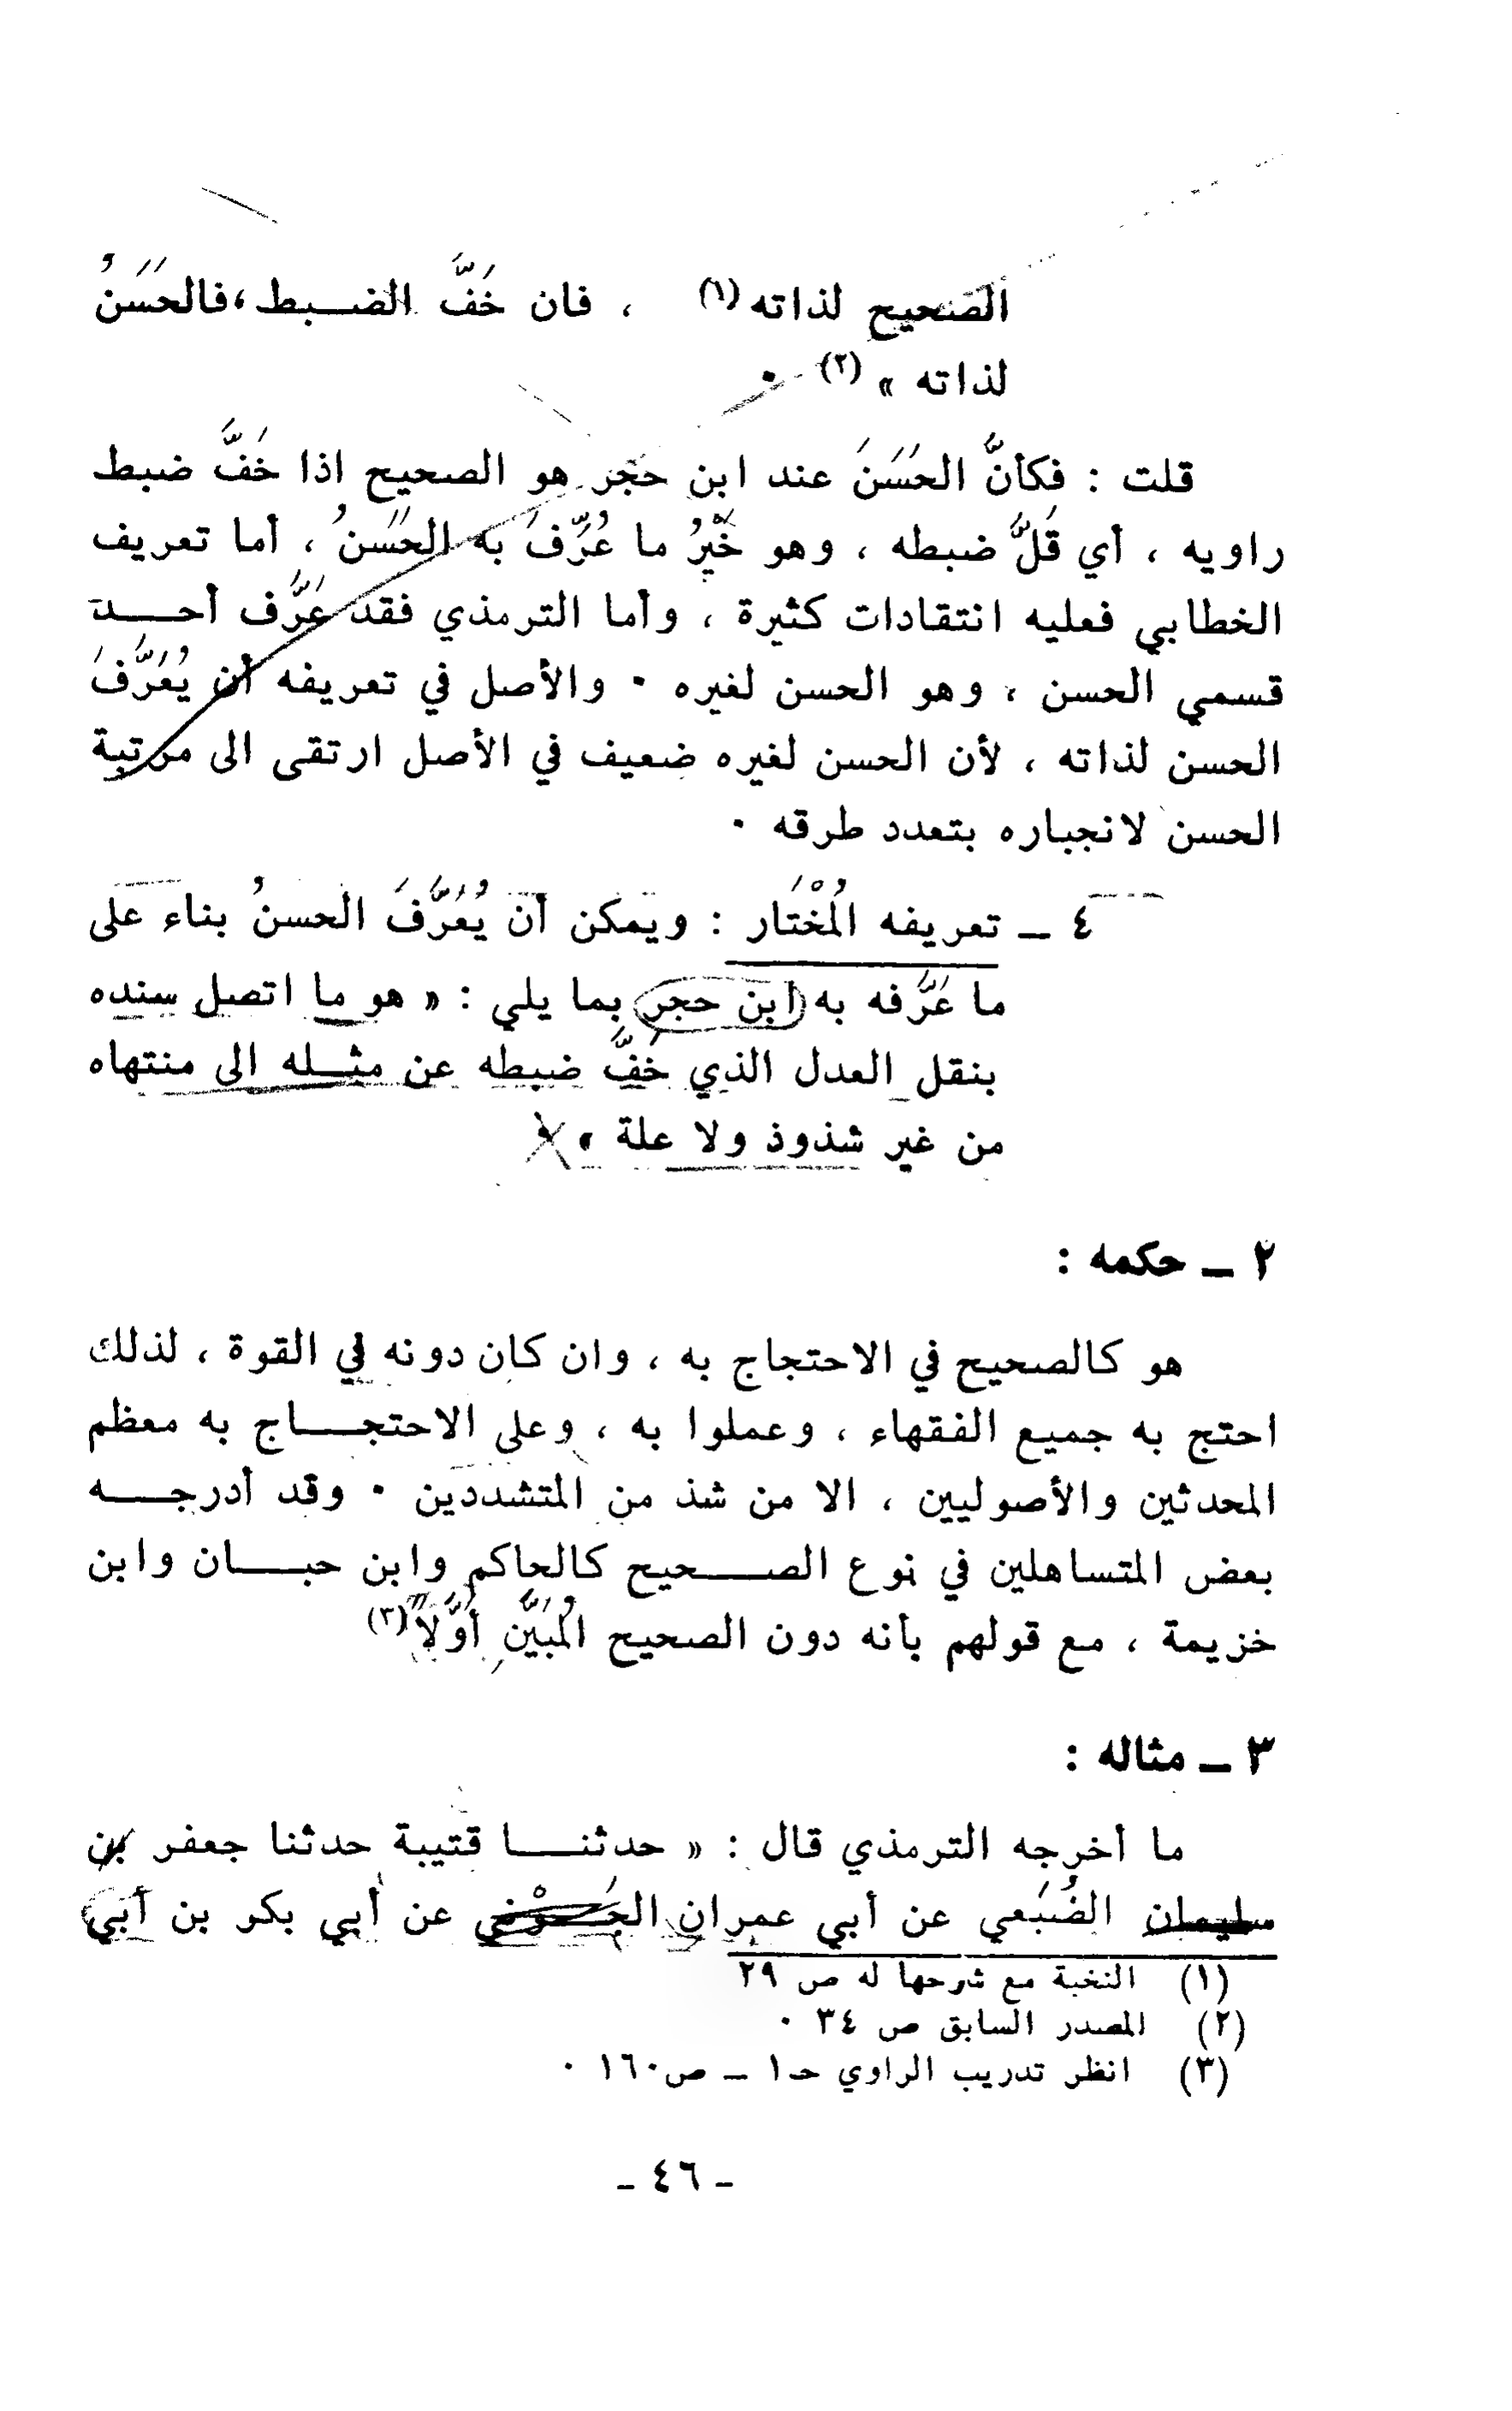 الصحيح لذاته (١) ، فان خَفَّ الضبط ، فالحَسَنُ
لذاته » (٢) ٠
قلت : فكأنَّ الحَسَنَ عند ابن حجر هو الصحيح اذا خَفَّ ضبط
راويه ، أي قَلَّ ضبطه ، وهو خَيْرُ ما عُرِّفَ به الحَسَنُ ، أما تعريف
الخطابي فعليه انتقادات كثيرة ، وأما الترمذي فقد عَرَّف أحد
قسمي الحسن ، وهو الحسن لغيره ٠ والأصل في تعريفه أن يُعَرَّفَ
الحسن لذاته ، لأن الحسن لغيره ضعيف في الأصل ارتقى الى مرتبة
الحسن لانجباره بتعدد طرقه ٠
٤ – تعريفه المُخْتَار : ويمكن أن يُعَرَّفَ الحسنُ بناء على
ما عَرَّفه به ابن حجر بما يلي : « هو ما اتصل سنده
بنقل العدل الذي خَفَّ ضبطه عن مثله الى منتهاه
من غير شذوذ ولا علة » ٠
٢ – حكمه :
هو كالصحيح في الاحتجاج به ، وان كان دونه في القوة ، لذلك
احتج به جميع الفقهاء ، وعملوا به ، وعلى الاحتجاج به معظم
المحدثين والأصوليين ، الا من شذ من المتشددين ٠ وقد أدرجه
بعض المتساهلين في نوع الصحيح كالحاكم وابن حبان وابن
خزيمة ، مع قولهم بأنه دون الصحيح المُبَيَّنِ أَوَّلاً (٣)
٣ – مثاله :
ما أخرجه الترمذي قال : « حدثنا قتيبة حدثنا جعفر بن
سليمان الضُبَعي عن أبي عمران الجَوْني عن أبي بكر بن أبي
(١) النخبة مع شرحها له ص ٢٩
(٢) المصدر السابق ص ٣٤ ٠
(٣) انظر تدريب الراوي حـ١ – ص١٦٠ ٠
- ٤٦ -